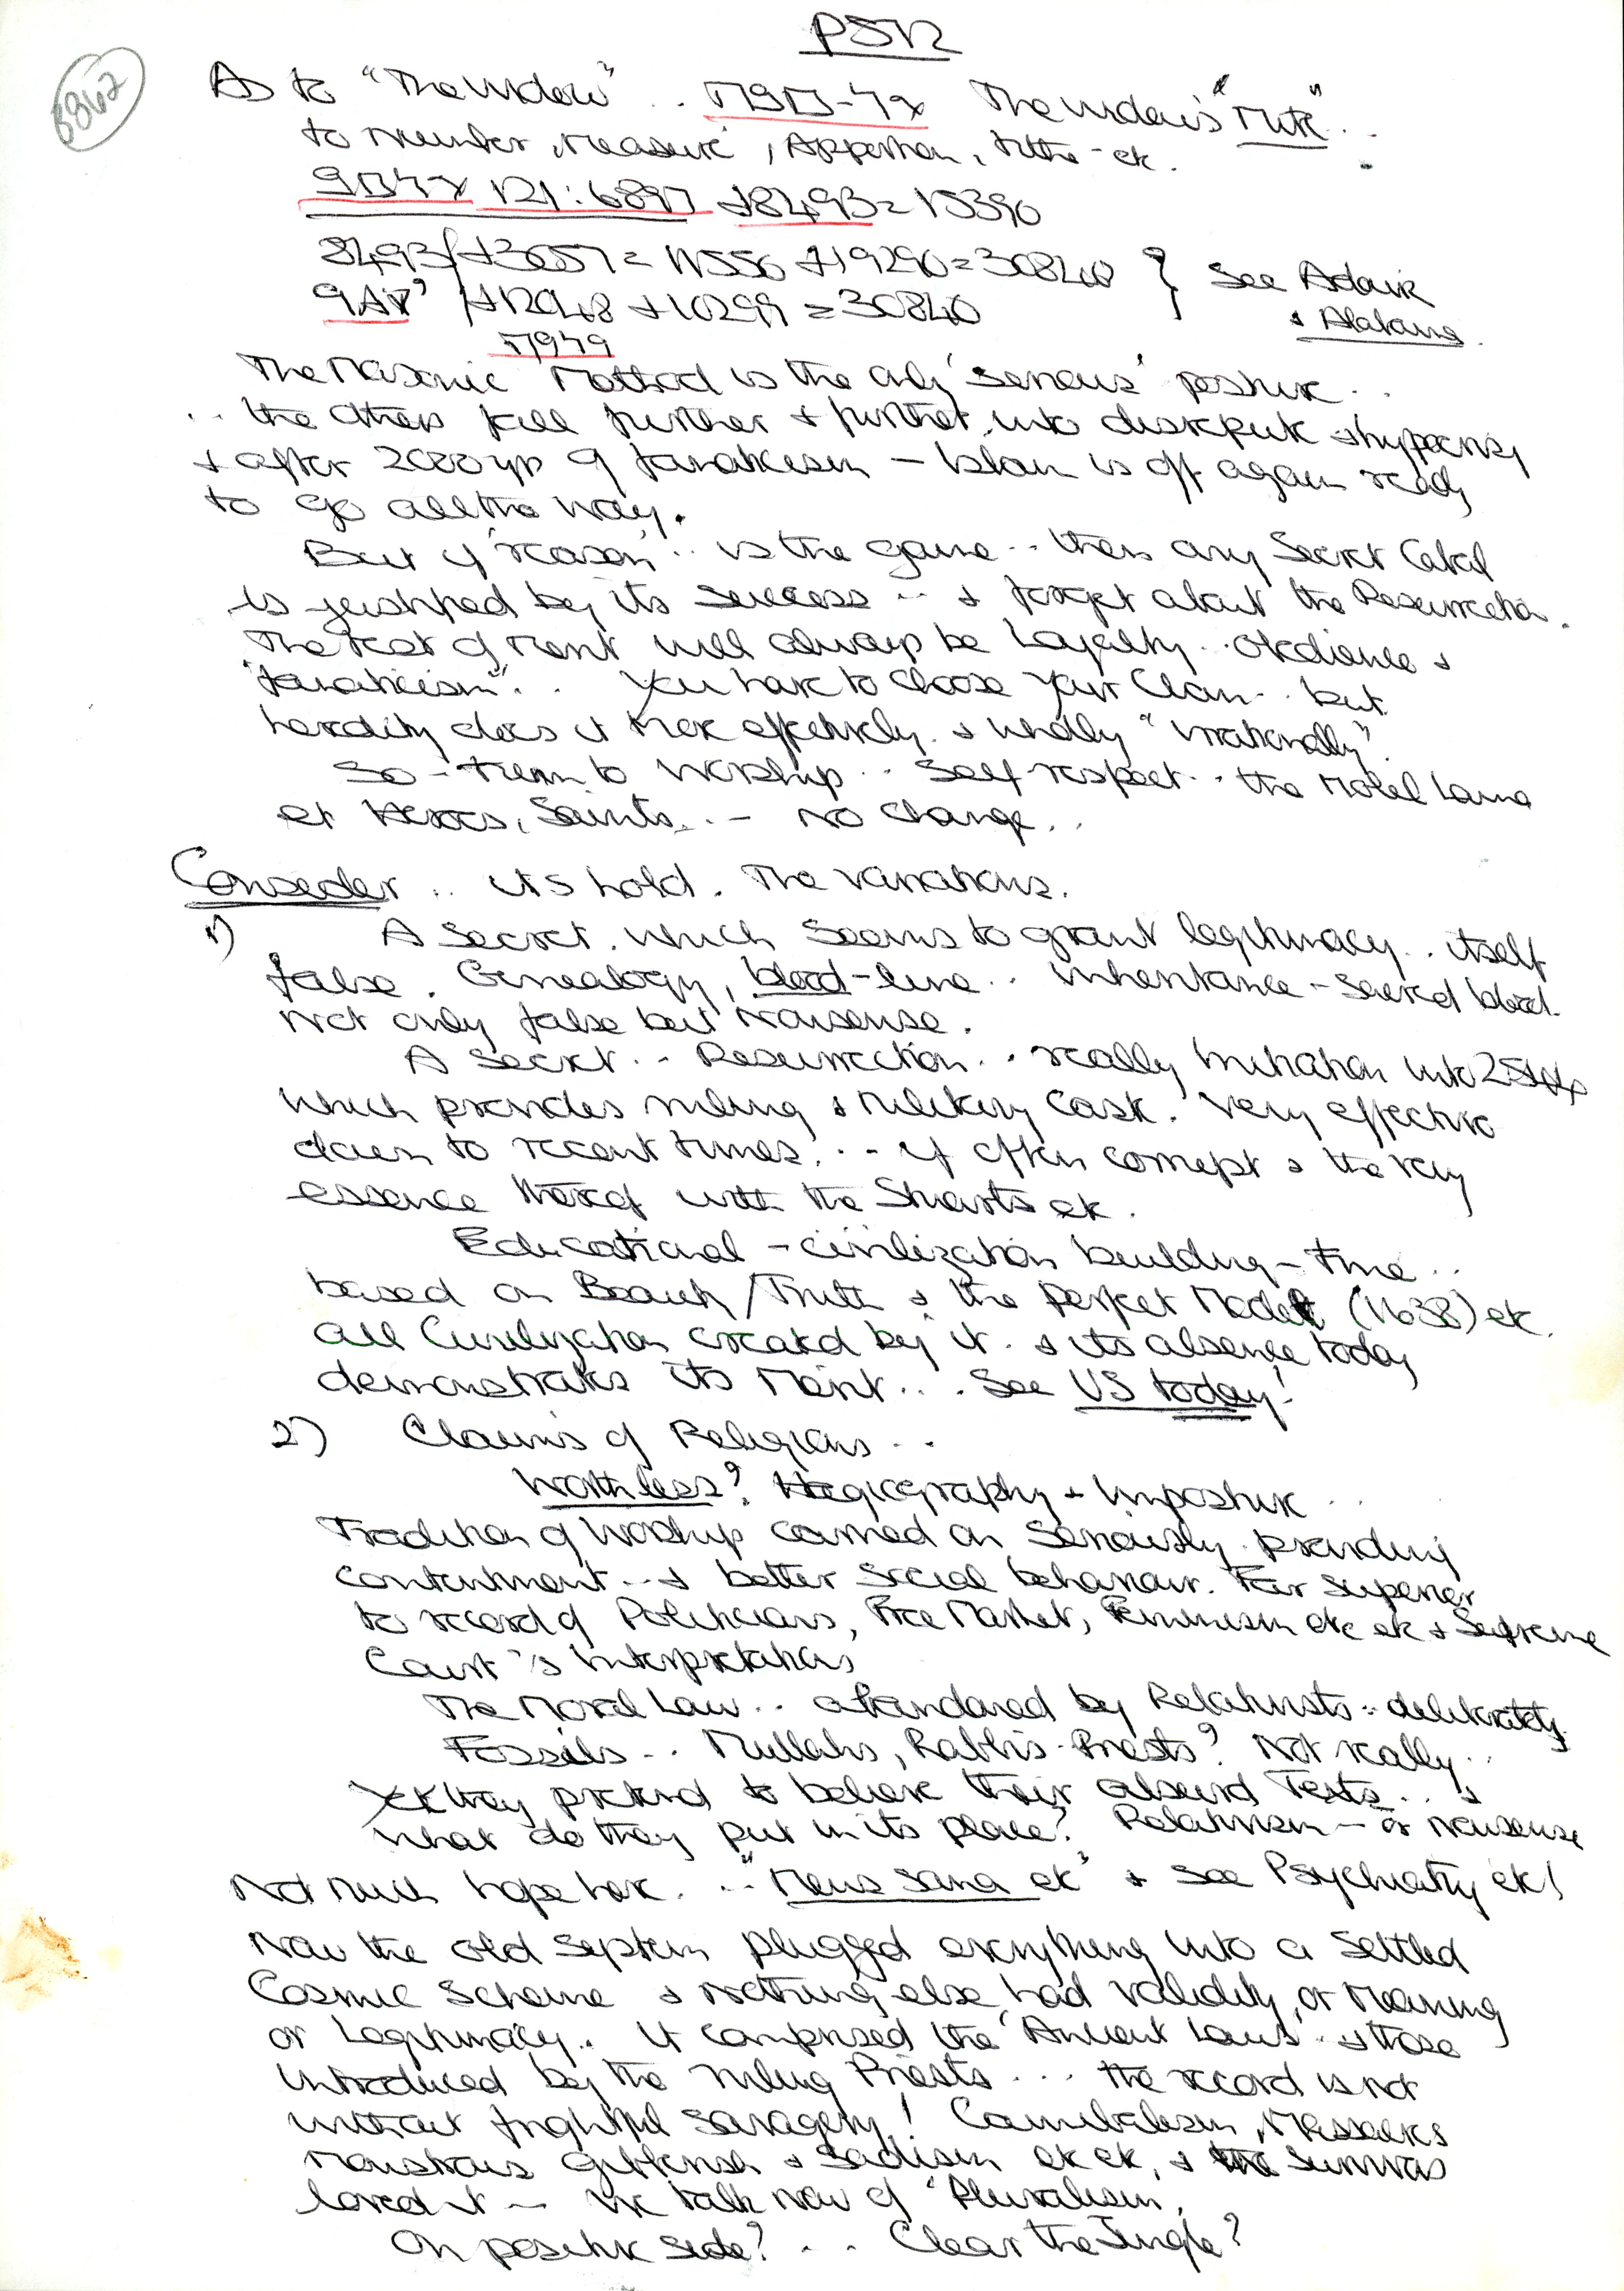 8862
As to "The Widow" .. The Widow's "Mite" ..
to Number, Measure, Apportion, tithe - etc.
121 : 6897 +8493 = 15390
8493 +3057 = 11550 +19290 = 30840 } See Adair
+12048 +10299 = 30840
The Masonic Method is the only 'serious' posture ..
.. the others fall further & further into disrepute & hypocrisy
& after 2000 yrs of fanaticism – Islam is off again ready
to go all the way.
But if 'reason' .. is the game .. then any Secret Cabal
is justified by its success .. & forget about the Resurrection.
The test of Merit will always be Loyalty .. Obedience &
"fanaticism" .. You have to choose your Clan .. but
heredity does it more effectively & wholly "irrationally".
So – turn to Worship .. Self-respect .. the Moral Law
et Heroes, Saints .. – No change ..
Consider .. its hold. The variations.
1) A Secret which seems to grant legitimacy .. itself
false. Genealogy, blood-line .. inheritance – sacred blood.
Not only false but Nonsense.
A Secret .. Resurrection .. really initiation into
which provides ruling & Military Caste. Very effective
down to recent times. .. if often corrupt & the very
essence thereof with the Stuarts etc.
Educational – civilization building – fine ..
based on Beauty/Truth & the perfect Model (1638) etc.
All Civilization created by it & its absence today
demonstrates its Merit ... See US today!
2) Claims of Religions ..
Worthless? Hagiography & Imposture ..
Tradition of Worship carried on Seriously providing
contentment .. & better social behaviour. Far superior
to record of Politicians, Free Market, Feminism etc etc & Supreme
Court's interpretations
The Moral Law .. abandoned by Relativists : deliberately.
Fossils .. Mullahs, Rabbis Priests? Not really ..
Yet they pretend to believe their absurd Texts .. &
what do they put in its place? Relativism – or nonsense
Not much hope here. .. "Mens Sana etc" & see Psychiatry etc!
Now the old System plugged everything into a settled
Cosmic Scheme & nothing else had validity, or Meaning
or Legitimacy. It comprised the 'Ancient Laws' & those
introduced by the ruling Priests ... the record is not
without frightful savagery! Cannibalism, Massacres
Monstrous & Sadism etc etc, &
loved it – We talk now of 'Pluralism.
On positive side? .. Clear the Jungle?